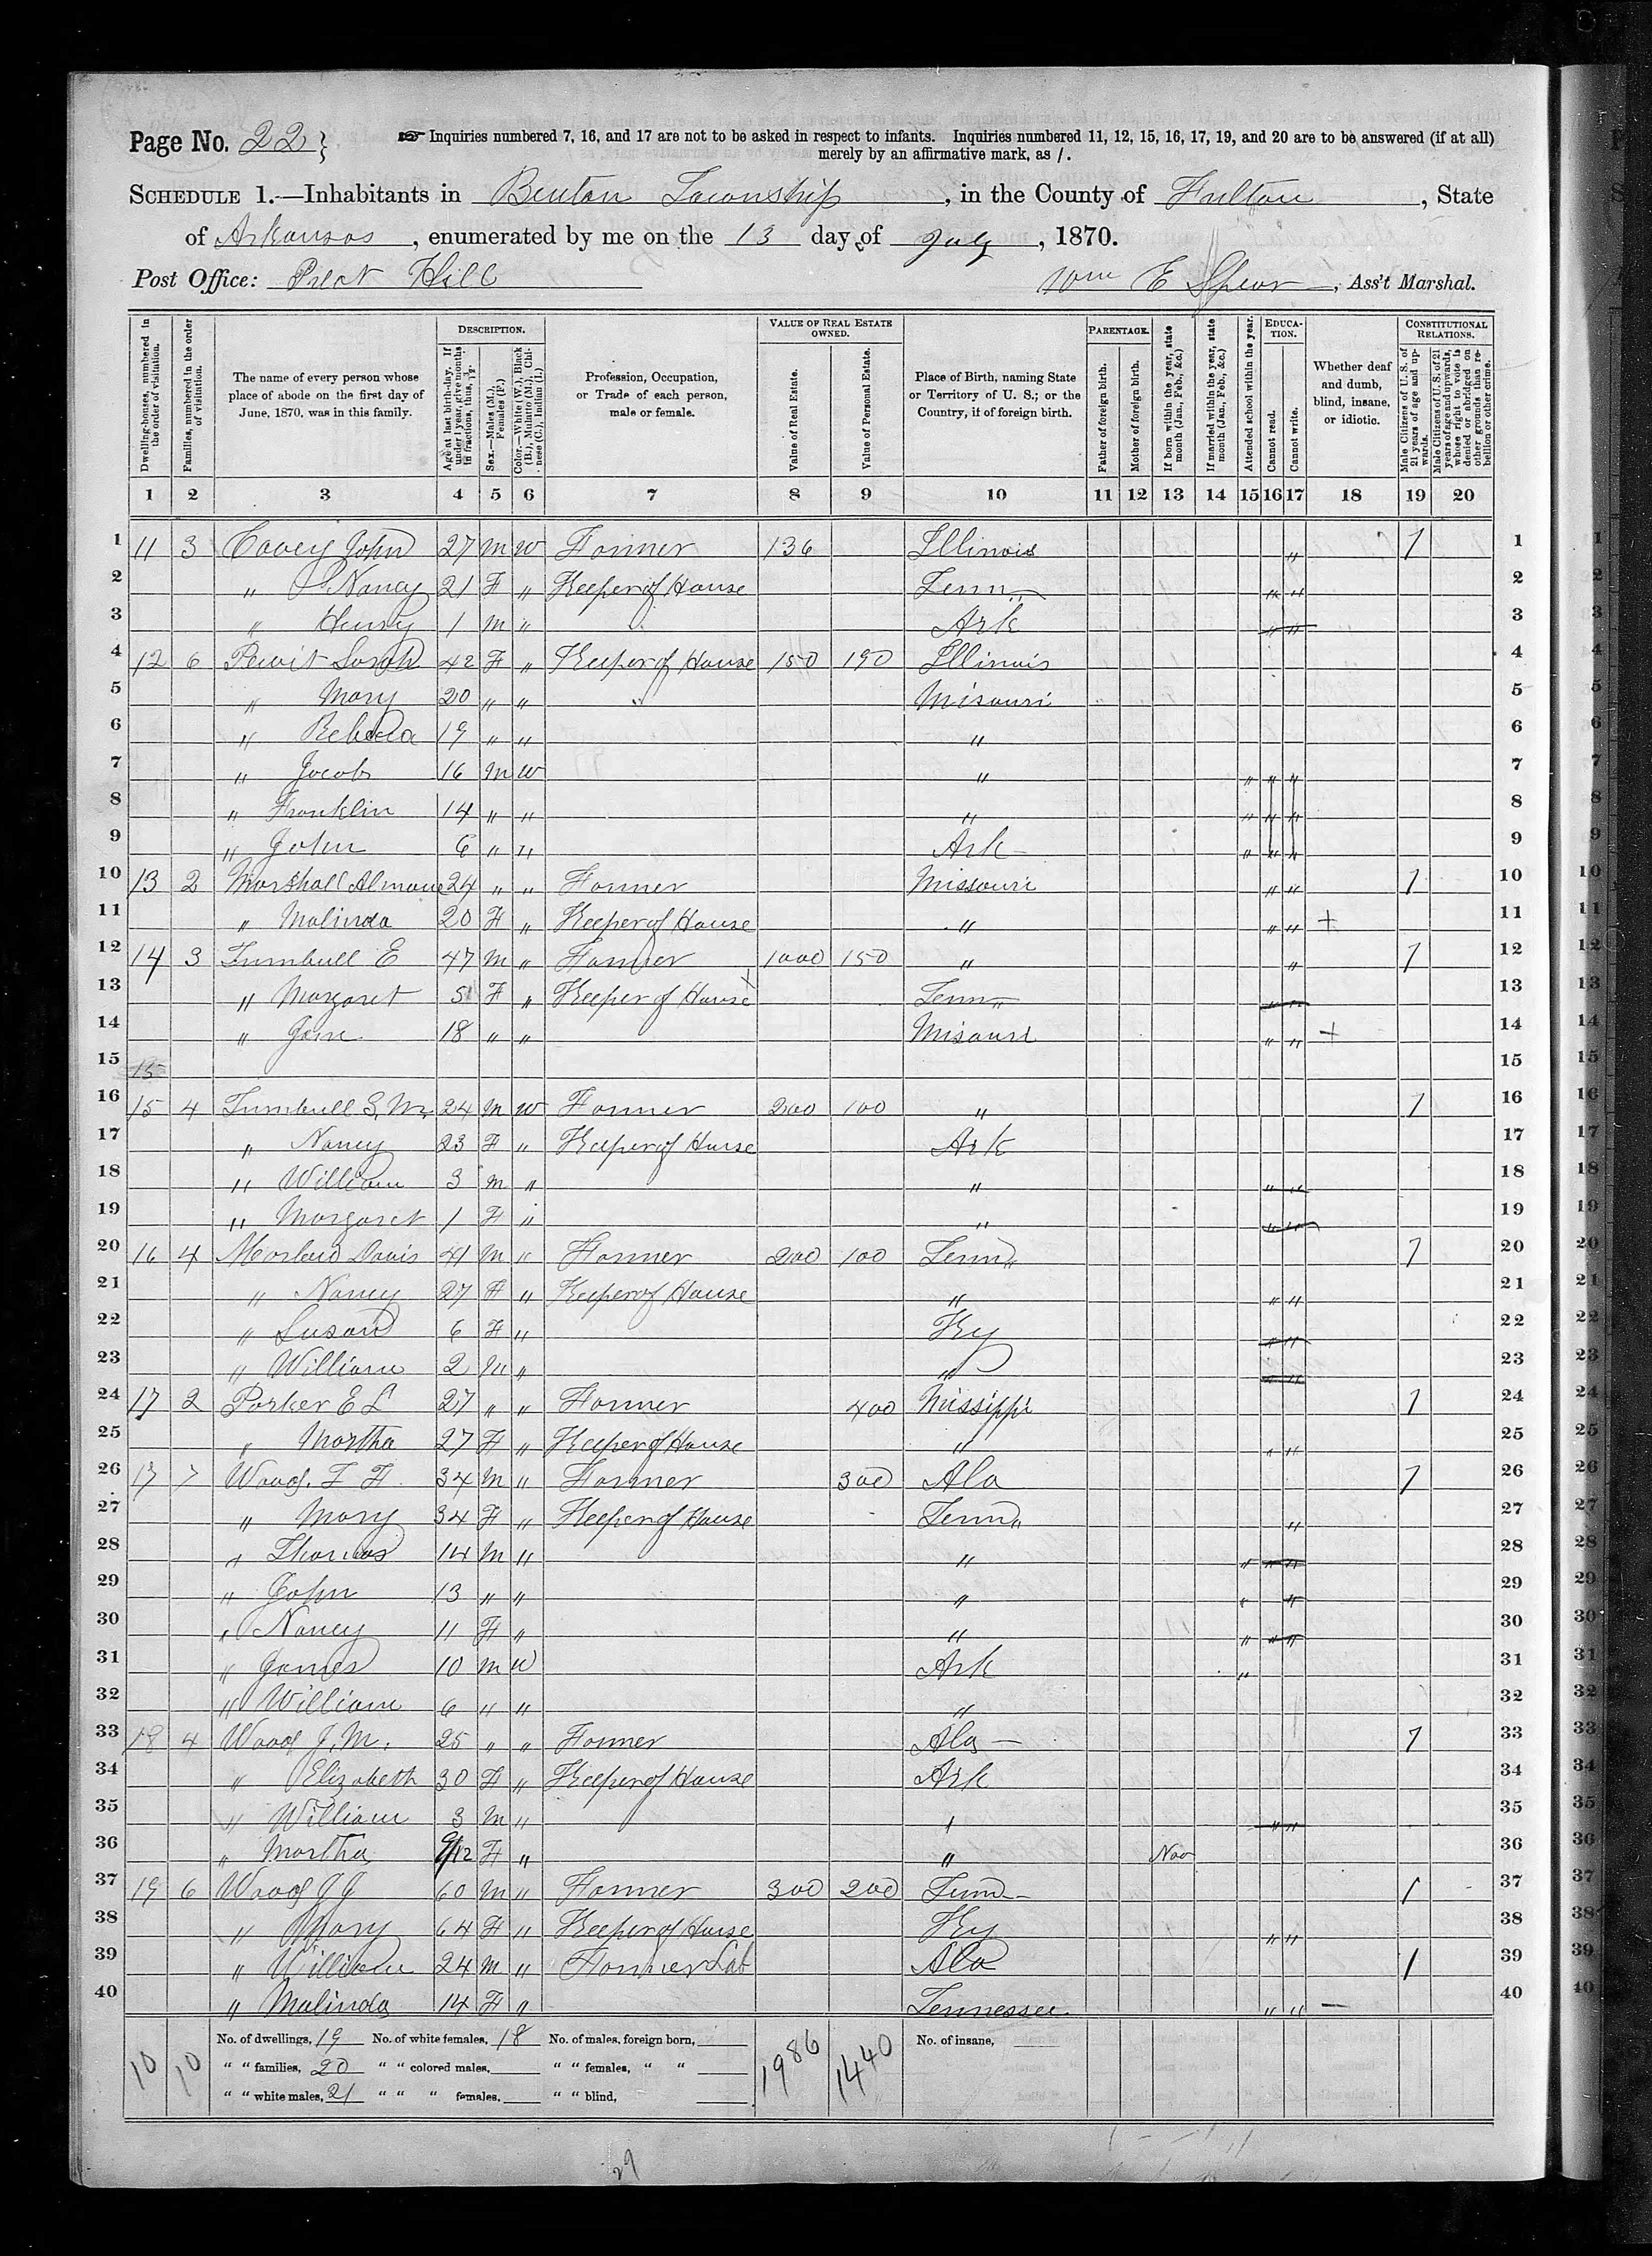 Page No. 22
☞ Inquiries numbered 7, 16, and 17 are not to be asked in respect to infants. Inquiries numbered 11, 12, 15, 16, 17, 19, and 20 are to be answered (if at all)
merely by an affirmative mark, as /.
SCHEDULE 1.—Inhabitants in Benton Township, in the County of Fulton, State
of Arkansas, enumerated by me on the 13 day of July, 1870.
Post Office: Hill Wm E Spear, Ass't Marshal.
DESCRIPTION. VALUE OF REAL ESTATE OWNED. PARENTAGE. EDUCATION. CONSTITUTIONAL RELATIONS.
Dwelling-houses, numbered in the order of visitation.
Families, numbered in the order of visitation.
The name of every person whose place of abode on the first day of June, 1870, was in this family.
Age at last birth-day. If under 1 year, give months in fractions, thus, 3/12.
Sex.—Males (M.), Females (F.)
Color.—White (W.), Black (B.), Mulatto (M.), Chinese (C.), Indian (I.)
Profession, Occupation, or Trade of each person, male or female.
Value of Real Estate.
Value of Personal Estate.
Place of Birth, naming State or Territory of U. S.; or the Country, if of foreign birth.
Father of foreign birth.
Mother of foreign birth.
If born within the year, state month (Jan., Feb., &c.)
If married within the year, state month (Jan., Feb., &c.)
Attended school within the year.
Cannot read.
Cannot write.
Whether deaf and dumb, blind, insane, or idiotic.
Male Citizens of U. S. of 21 years of age and upwards.
Male Citizens of U. S. of 21 years of age and upwards, whose right to vote is denied or abridged on other grounds than rebellion or other crime.
1 2 3 4 5 6 7 8 9 10 11 12 13 14 15 16 17 18 19 20
1 11 3 John 27 M W Farmer 136 Illinois " 1 1
2 " Nancy 21 F " Keeper of House Tenn " " 2
3 " Henry 1 M " Ark " " 3
4 12 6 Sarah 42 F " Keeper of House 150 190 Illinois 4
5 " Mary 20 " " Misouri 5
6 " Rebecca 19 " " " 6
7 " Jacob 16 M W " " " " 7
8 " Franklin 14 " " " " " " 8
9 " John 6 " " Ark " " " 9
10 13 2 Marshall 24 " " Farmer Missouri " " 1 10
11 " Malinda 20 F " Keeper of House " " " + 11
12 14 3 Turnbull E 47 M " Farmer 1000 150 " " 1 12
13 " Margaret 51 F " Keeper of House Tenn " " 13
14 " Jane 18 " " Misouri " " + 14
15 15 15
16 15 4 Turnbull S, W, 24 M W Farmer 200 100 " 1 16
17 " Nancy 23 F " Keeper of House Ark 17
18 " William 3 M " " " " 18
19 " Margaret 1 F " " " " 19
20 16 4 Davis 41 M " Farmer 200 100 Tenn 1 20
21 " Nancy 27 F " Keeper of House " " " 21
22 " Susan 6 F " Ky " " 22
23 " William 2 M " " " " 23
24 17 2 Parker E L 27 " " Farmer 400 Missippi 1 24
25 " Martha 27 F " Keeper of House " " " 25
26 17 7 Wood, T F. 34 M " Farmer 300 Ala 1 26
27 " Mary 34 F " Keeper of House Tenn " 27
28 " Thomas 14 M " " " " " 28
29 " John 13 " " " " " 29
30 " Nancy 11 F " " " " " 30
31 " James 10 M W Ark " 31
32 " William 6 " " " 32
33 18 4 Wood J. M. 25 " " Farmer Ala 1 33
34 " Elizabeth 30 F " Keeper of House Ark 34
35 " William 3 M " " " " 35
36 " Martha 9/12 F " " Nov 36
37 19 6 Wood J J 60 M " Farmer 300 200 Tenn 1 37
38 " Mary 64 F " Keeper of House Ky " " 38
39 " William 24 M " Farmer Lab Ala 1 39
40 " Malinda 14 F " Tennessee " " — 40
No. of dwellings, 19 No. of white females, 18 No. of males, foreign born, No. of insane,
" " families, 20 " " colored males, " " females, " "
" " white males, 21 " " " females, " " blind,
10 10 1986 1440
29